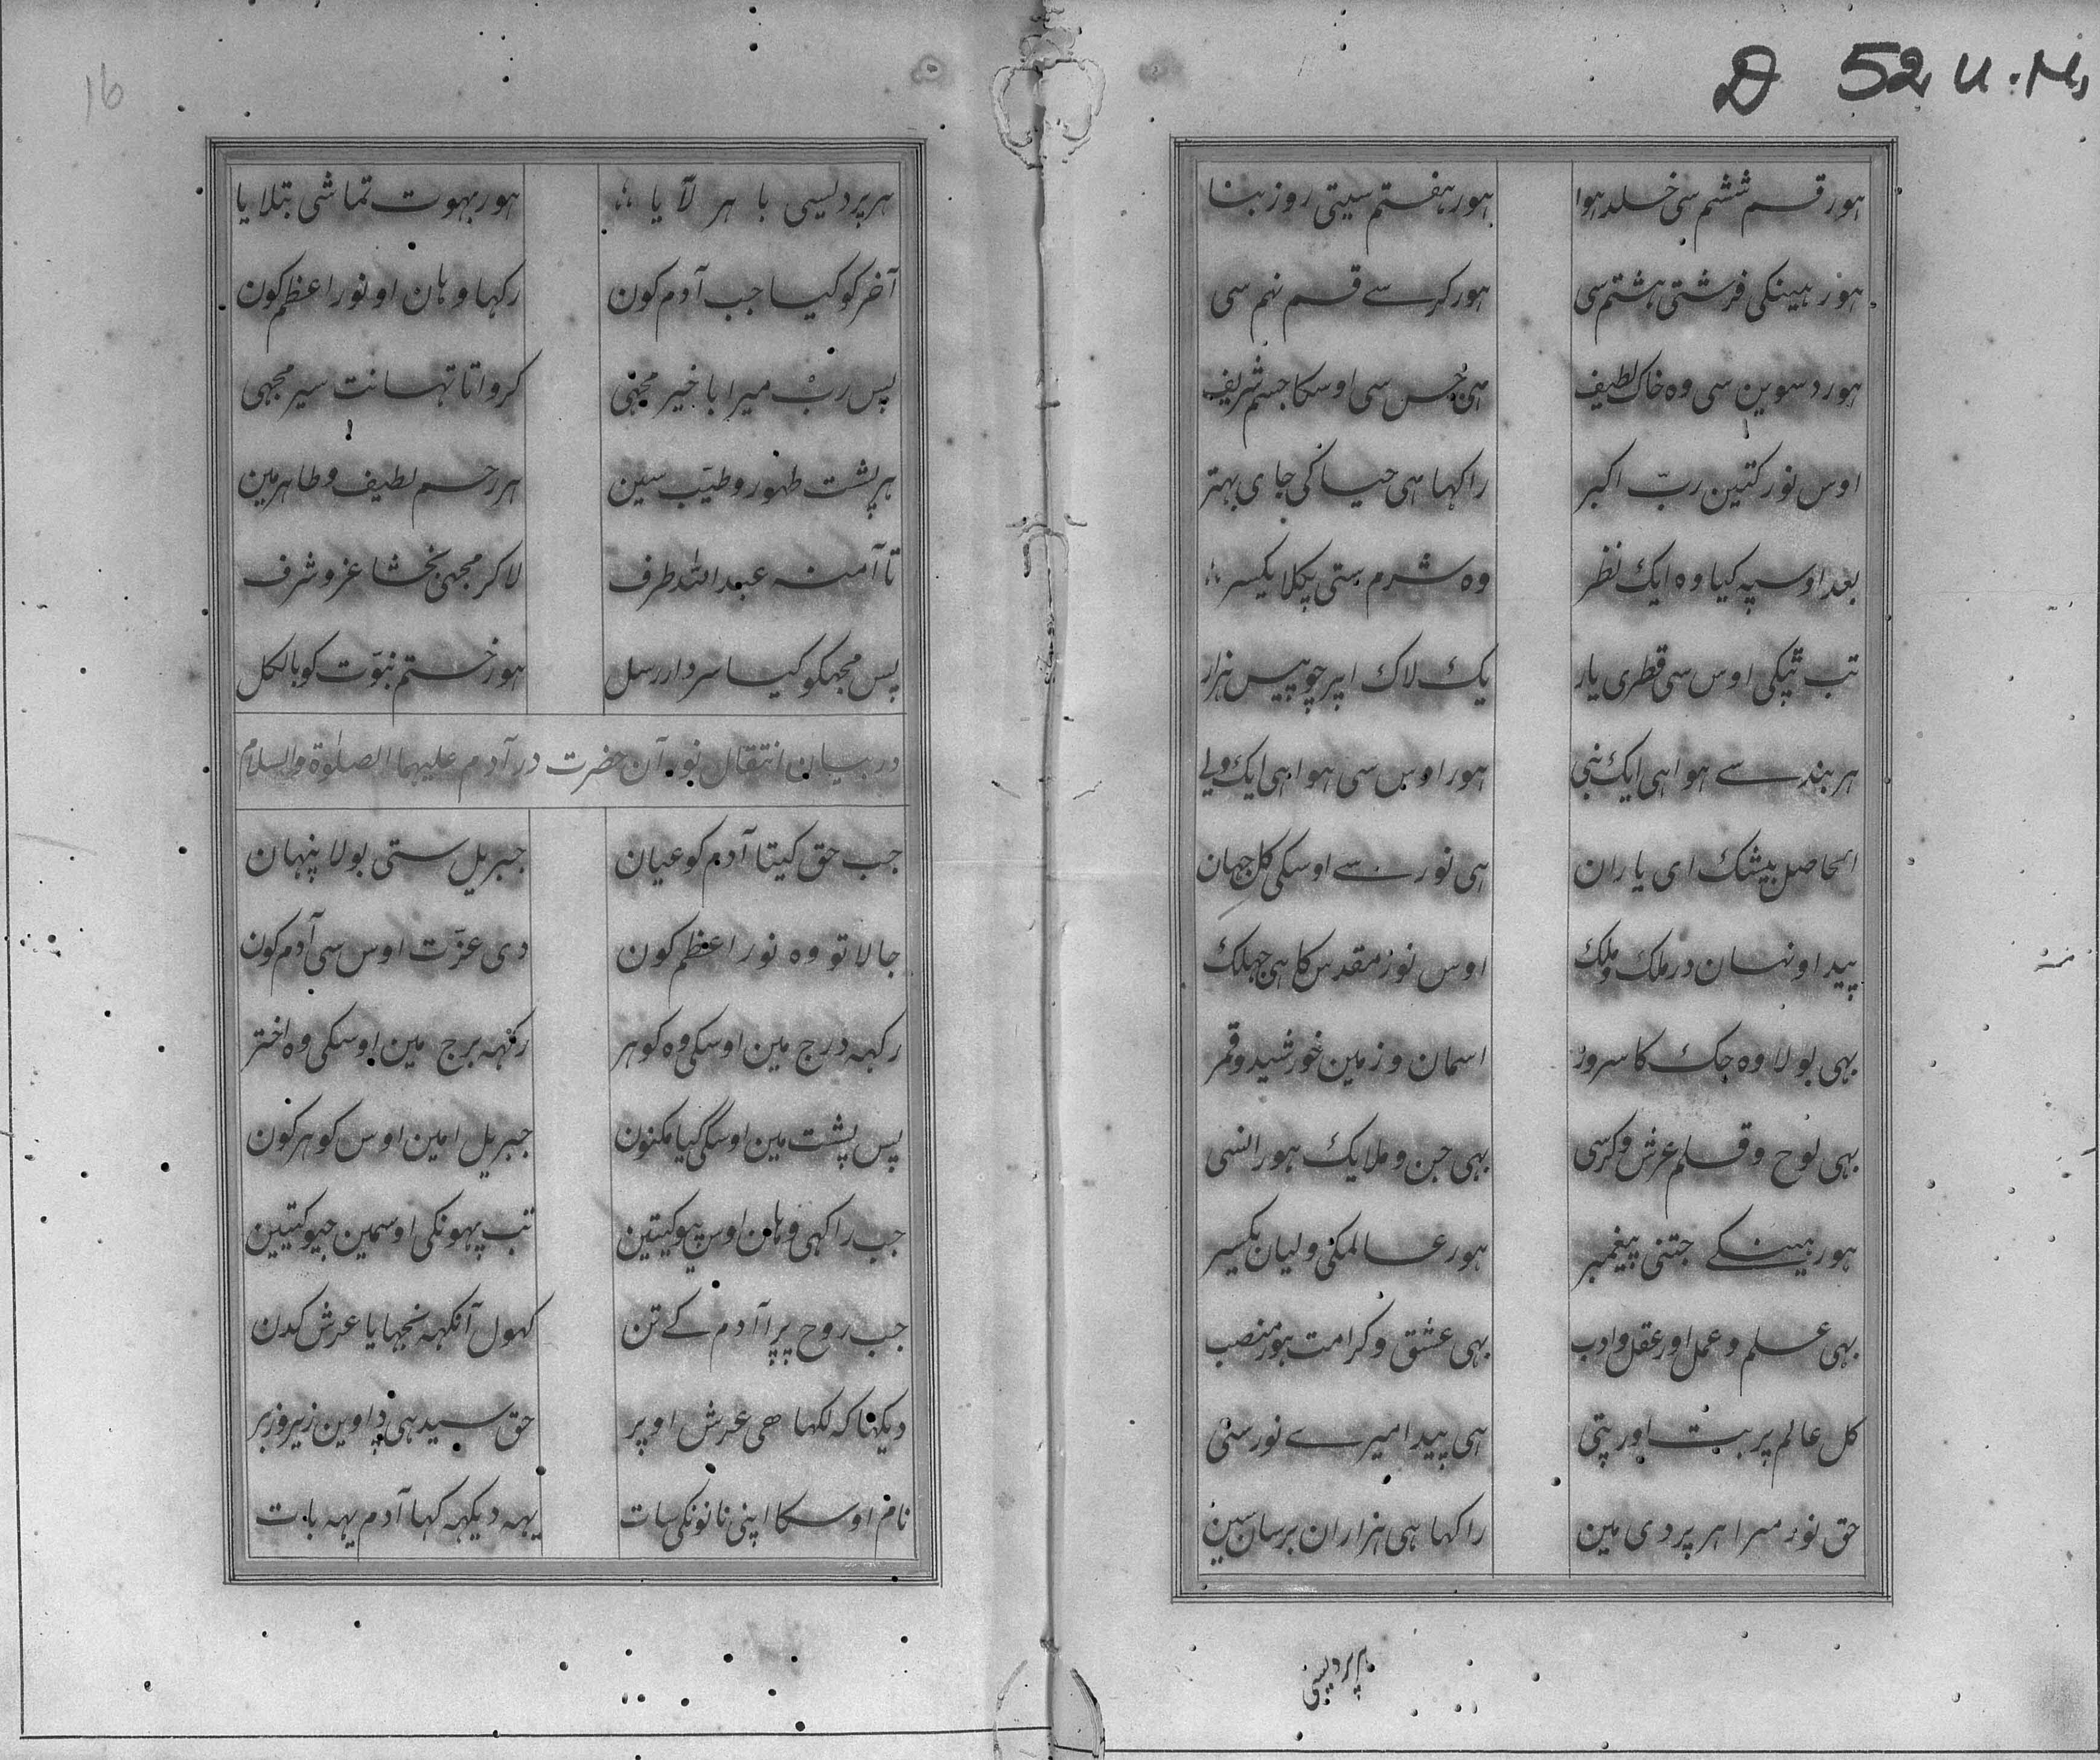 D 52 U.M.
هور قسم ششم سی خلد هوا هور هفتم سیتی روز بنا
هور هینکی فرشتی هشتم سی هور کرسے قسم نهم سی
هور دسوین سی وه خاک لطیف هی جس سی اوسکا جسم شریف
اوس نور کتین ربّ اکبر راکها هی حیا کی جای بهتر
بعد اوسپه کیا وه ایک نظر وه شرم ستی پکلا یکسر
تب ٹپکی اوس سی قطری یار یک لاک اپر چوبیس هزار
هر بندسے هوا هی ایک نبی هور اوس سی هوا هی ایک ولے
الحاصل بیشک ای یاران هی نور سے اوسکی کل جهان
پیدا و نهان در ملک و ملک اوس نور مقدس کا هی جهلک
بهی بولا وه جک کا سرور اسمان و زمین خورشید و قمر
بهی لوح و قلم عرش و کرسی بهی جن و ملایک هور انسی
هور هینکے جتنی پیغمبر هور عالمکی ولیان یکسر
بهی علم و عمل اور عقل و ادب بهی عشق و کرامت هور منصب
کل عالم پربت اور پتی هی پیدا میرے نور ستی
حق نور مرا هر پردی مین راکها هی هزاران برسان سین
هر پردیسی
16
هر پردیسی باهر لآیا هور بهوت تماشی بتلایا
آخر کو کیا جب آدم کون رکها وهان او نور اعظم کون
پس ربّ میرا باخیر مجهی کرواتا تها نت سیر مجهی
هر پشت طهور و طیّب سین هر رحم لطیف و طاهر مین
تا آمنه عبدالله طرف لاکر مجهی بخشا عز و شرف
پس مجهکو کیا سردار رسل هور ختم نبوّت کو بالکل
در بیان انتقال نور آن حضرت در آدم علیهما الصلوٰة والسلام
جب حق کیتا آدم کو عیان جبریل ستی بولا پنهان
جا لا تو وه نور اعظم کون دی عزّت اوس سی آدم کون
رکهه درج مین اوسکی وه کوهر رکهه برج مین اوسکی وه اختر
پس پشت مین اوسکی کیا مکنون جبریل امین اوس کوهر کون
جب راکهی وهان اوس پیو کیتین تب پهونکی اوسمین جیو کیتین
جب روح پرا آدم کے تن کهول آنکهه نجهایا عرش کدن
دیکها که لکها هی عرش اوپر حق سیدهی داوین زیر و زبر
نام اوسکا اپنی نانوکی سات یهه دیکهه کها آدم یهه بات